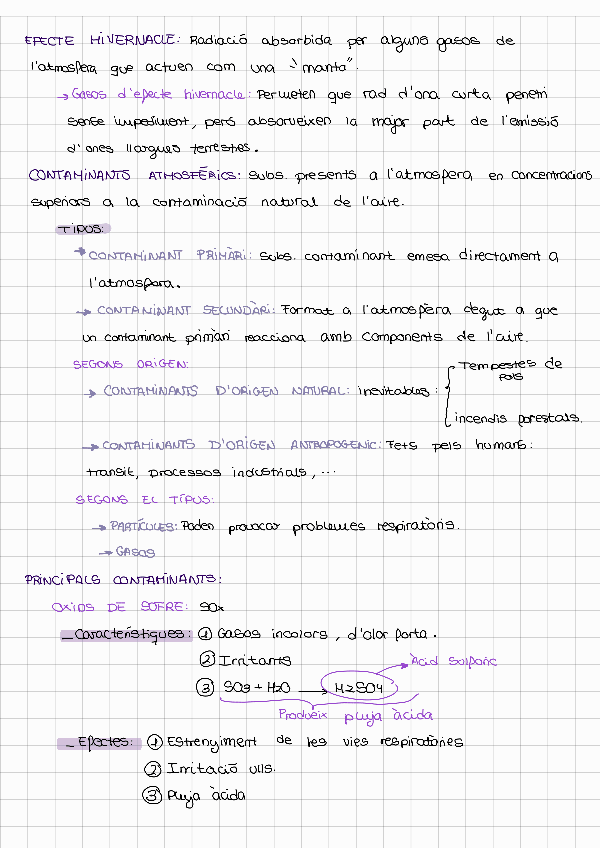 EFECTE HIVERNACLE: Radiació absorbida per alguns gasos de
l'atmosfera que actuen com una "manta".
→ Gasos d'efecte hivernacle: Permeten que rad d'ona curta penetri
sense impediment, però absorveixen la major part de l'emissió
d'ones llargues terrestres.
CONTAMINANTS ATMOSFÈRICS: Subs. presents a l'atmosfera en concentracions
superiors a la contaminació natural de l'aire.
TIPUS:
→ CONTAMINANT PRIMÀRI: Subs. contaminant emesa directament a
l'atmosfera.
→ CONTAMINANT SECUNDÀRI: Format a l'atmosfèra degut a que
un contaminant primàri reacciona amb components de l'aire.
SEGONS ORIGEN:
→ CONTAMINANTS D'ORIGEN NATURAL: inevitables: Tempestes de
pols
incendis forestals.
→ CONTAMINANTS D'ORIGEN ANTROPOGENIC: Fets pels humans:
transit, processos industrials, ...
SEGONS EL TIPUS:
→ PARTÍCULES: Poden provocar problemes respiratòris.
→ GASOS
PRINCIPALS CONTAMINANTS:
OXIDS DE SOFRE: SOx
_ Característiques: ① Gasos incolors, d'olor forta.
② Irritants → Àcid sulfúric
③ SO3 + H2O → H2SO4
Produeix pluja àcida
_ Efectes: ① Estrenyiment de les vies respiratòries
② Irritació ulls.
③ Pluja àcida